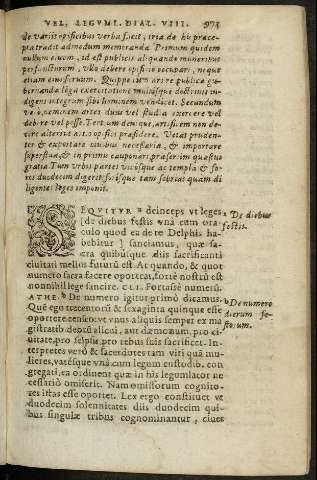 VEL, LEGVMI. DIAL. VIII. 975
de variis opificibus verba facit, tria de his præce-
pta tradit admodum memoranda. Primum quidem
nullum ciuem, id est publicis aliquando muneribus
perfuncturum, vllo debere opificio occupari, neque
etiam
Quippe in arte publica gu-
bernanda lōga exercitatione multisque doctrinis in-
digens integrum sibi hominem vendicet. Secundum
verò, neminem artes duas vel studia exercere vel
debere vel posse. Tertium denique,
non de-
cere alterius artis opifici præsidere. Vetat pruden-
ter & exportare ciuibus necessaria, & importare
superflua, & in primis cauponari, præsertim quæstus
gratia. Tum vrbis partes vicósque ac templa & fo-
res duodecim digerit, forísque tam sacrias quàm di-
ligentes leges imponit.
SEQVITVR ª deinceps vt leges
de diebus festis vnà cum ora-
culo quod ea de re Delphis ha-
bebitur sanciamus, quæ sa-
cra quibúsque diis sacrificanti
ciuitati melius futurū est. At quando, & quot
numero sacra facere oporteat, fortè nostrū est
nonnihil lege sancire. CLI. Fortassè numerū.
ATHE. ᵇ De numero igitur primò dicamus.
Quē ego trecentoru & sexaginta quinque esse
oportere censeo, vt vnus aliquis semper ex ma
gistratib. deorū alicui, aut dæmonum, pro ci-
uitate, pro seipsis, pro rebus suis sacrificet. In-
terpretes verò & sacerdotes tam viri quā mu-
lieres, vatésque vnà cum legum custodib. con
gregati, ea ordinent quæ in his legumlator ne
cessariò omiserit. Nam omissorum cognito-
res istas esse oportet. Lex ergo constituet vt
duodecim solennitates diis duodecim qui-
bus singulæ tribus cognominantur, ciues
a De diebus
festis.
b De numero
dierum fe-
storum.